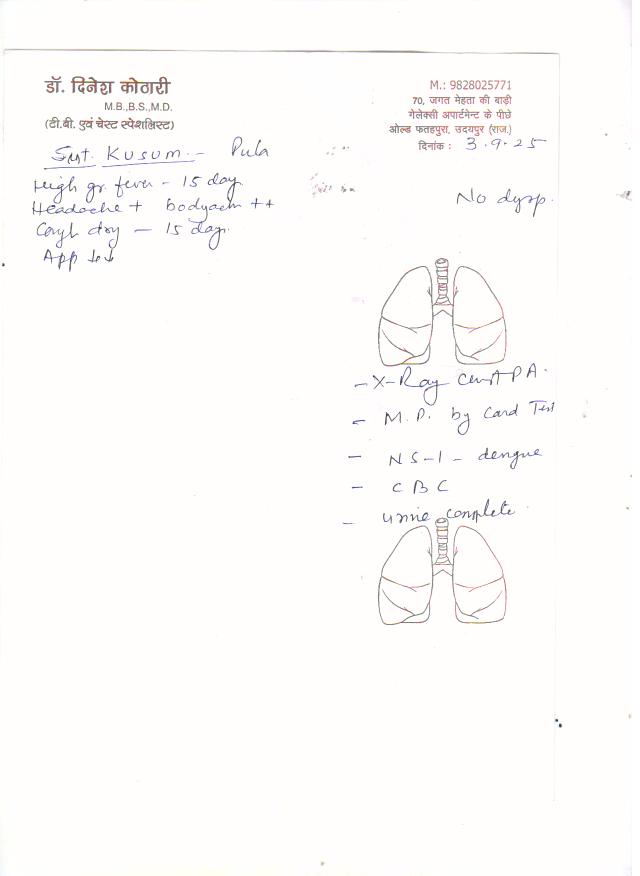 डॉ. दिनेश कोठारी
M.B.,B.S.,M.D.
(टी.बी. एवं चेस्ट स्पेशलिस्ट)
M.: 9828025771
70, जगत मेहता की बाड़ी
गेलेक्सी अपार्टमेन्ट के पीछे
ओल्ड फतहपुरा, उदयपुर (राज.)
दिनांक : 3.9.25
Smt. Kusum - Pula
High gr. fever - 15 day
Headache + bodyache ++
Cough dry - 15 days.
App ↓↓
No dysp.
- X-Ray Chest PA.
- M.P. by Card Test
- NS-1 - dengue
- CBC
- urine complete